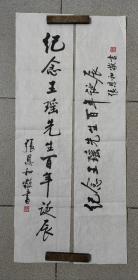 纪念王瑶先生百年诞辰
张恩和敬书
纪念王瑶先生百年诞辰
张恩和敬书